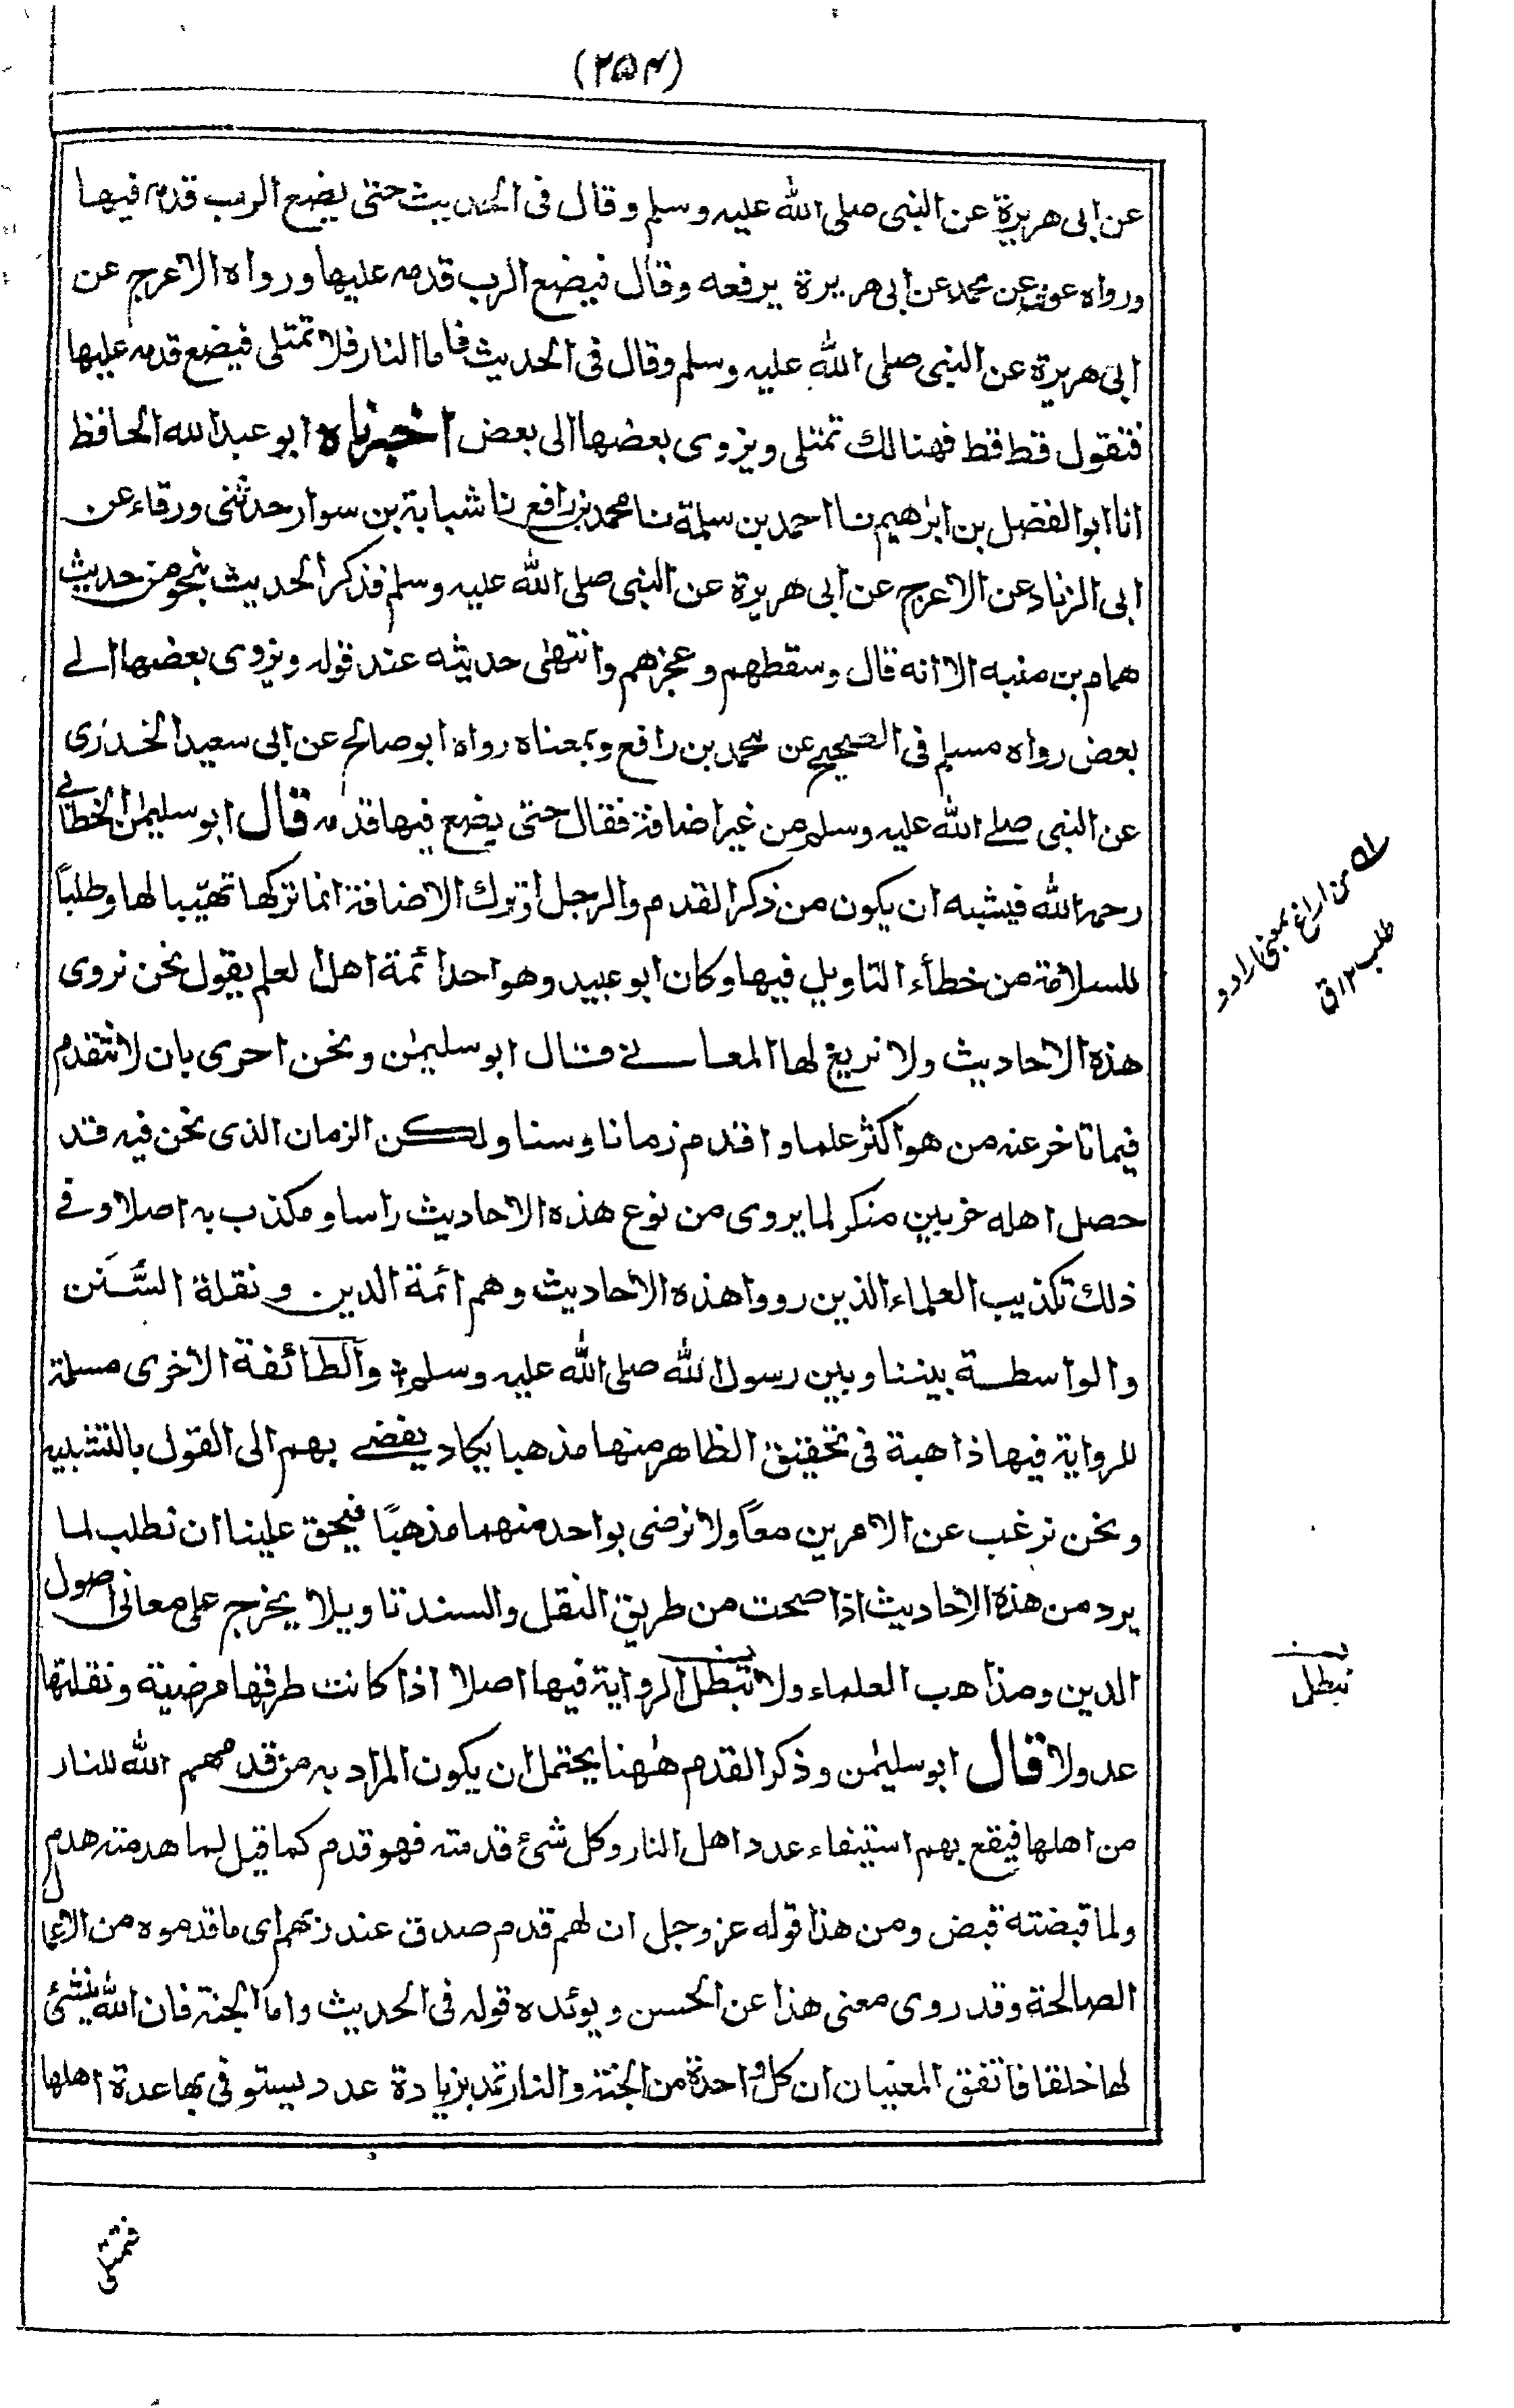 (۲۵۴)
عن ابى هريرة عن النبى صلى الله عليه وسلم وقال فى الحديث حتى يضع الرب قدمه فيها
ورواه عوف عن محمد عن ابى هريرة يرفعه وقال فيضع الرب قدمه عليها ورواه الاعرج عن
ابى هريرة عن النبى صلى الله عليه وسلم وقال فى الحديث فاما النار فلا تمتلى فيضع قدمه عليها
فتقول قط قط فهنالك تمتلى ويزوى بعضها الى بعض اخبرناه ابو عبد الله الحافظ
انا ابو الفضل بن ابرٰهيم نا احمد بن سلمة نا محمد بن رافع نا شبابة بن سوار حدثنى ورقاء عن
ابى الزناد عن الاعرج عن ابى هريرة عن النبى صلى الله عليه وسلم فذكر الحديث بنحو من حديث
همام بن منبه الا انه قال وسقطهم وعجزهم وانتهٰى حديثه عند قوله ويزوى بعضها الے
بعض رواه مسلم فى الصحيح عن محمد بن رافع وبمعناه رواه ابو صالح عن ابى سعيد الخدرى
عن النبى صلے الله عليه وسلم من غير اضافة فقال حتى يضع فيها قدمه قال ابو سليمٰن الخطابے
رحمه الله فيشبه ان يكون من ذكر القدم والرجل او ترك الاضافة انما تركها تهيّبا لها وطلبًا
للسلامة من خطأء التاويل فيها وكان ابو عبيد وهو احد ائمة اهل العلم يقول نحن نروى
هذه الاحاديث ولا نريغ لها المعانے قال ابو سليمٰن ونحن احرى بان لا نتقدم
فيما تاخر عنه من هو اكثر علما واقدم زمانا وسنا ولكن الزمان الذى نحن فيه قد
حصل اهله حزبين منكر لما يروى من نوع هذه الاحاديث راسا ومكذب به اصلا وفے
ذلك تكذيب العلماء الذين رووا هذه الاحاديث وهم ائمة الدين ونقلة السُّنَن
والواسطة بيننا وبين رسول الله صلى الله عليه وسلم والطائفة الاخرى مسلمة
للرواية فيها ذاهبة فى تحقيق الظاهر منها مذهبا يكاد يفضے بهم الى القول بالتشبيه
ونحن نرغب عن الامرين معًا ولا نرضى بواحد منهما مذهبًا فيحق علينا ان نطلب لما
يرد من هذه الاحاديث اذا صحت من طريق النقل والسند تاويلا يخرج على معانى اصول
الدين ومذاهب العلماء ولا تبطل الرواية فيها اصلا اذا كانت طرقها مرضية ونقلتها
عدولا قال ابو سليمٰن وذكر القدم هٰهنا يحتمل ان يكون المراد به من قدمهم الله للنار
من اهلها فيقع بهم استيفاء عدد اهل النار وكل شئ قدمته فهو قدم كما قيل لما هدمته هدم
ولما قبضته قبض ومن هذا قوله عز وجل ان لهم قدم صدق عند ربهم اى ما قدموه من الاعمال
الصالحة وقد روى معنى هذا عن الحسن ويوئده قوله فى الحديث واما الجنة فان الله ينشئ
لها خلقا فاتفق المعنيان ان كل واحدة من الجنة والنار تمد بزيادة عدد يستوفى بها عدة اهلها
من اراغ بمعنى اراد و
طلب ۱۲ ق
نبطل
فتمتلى